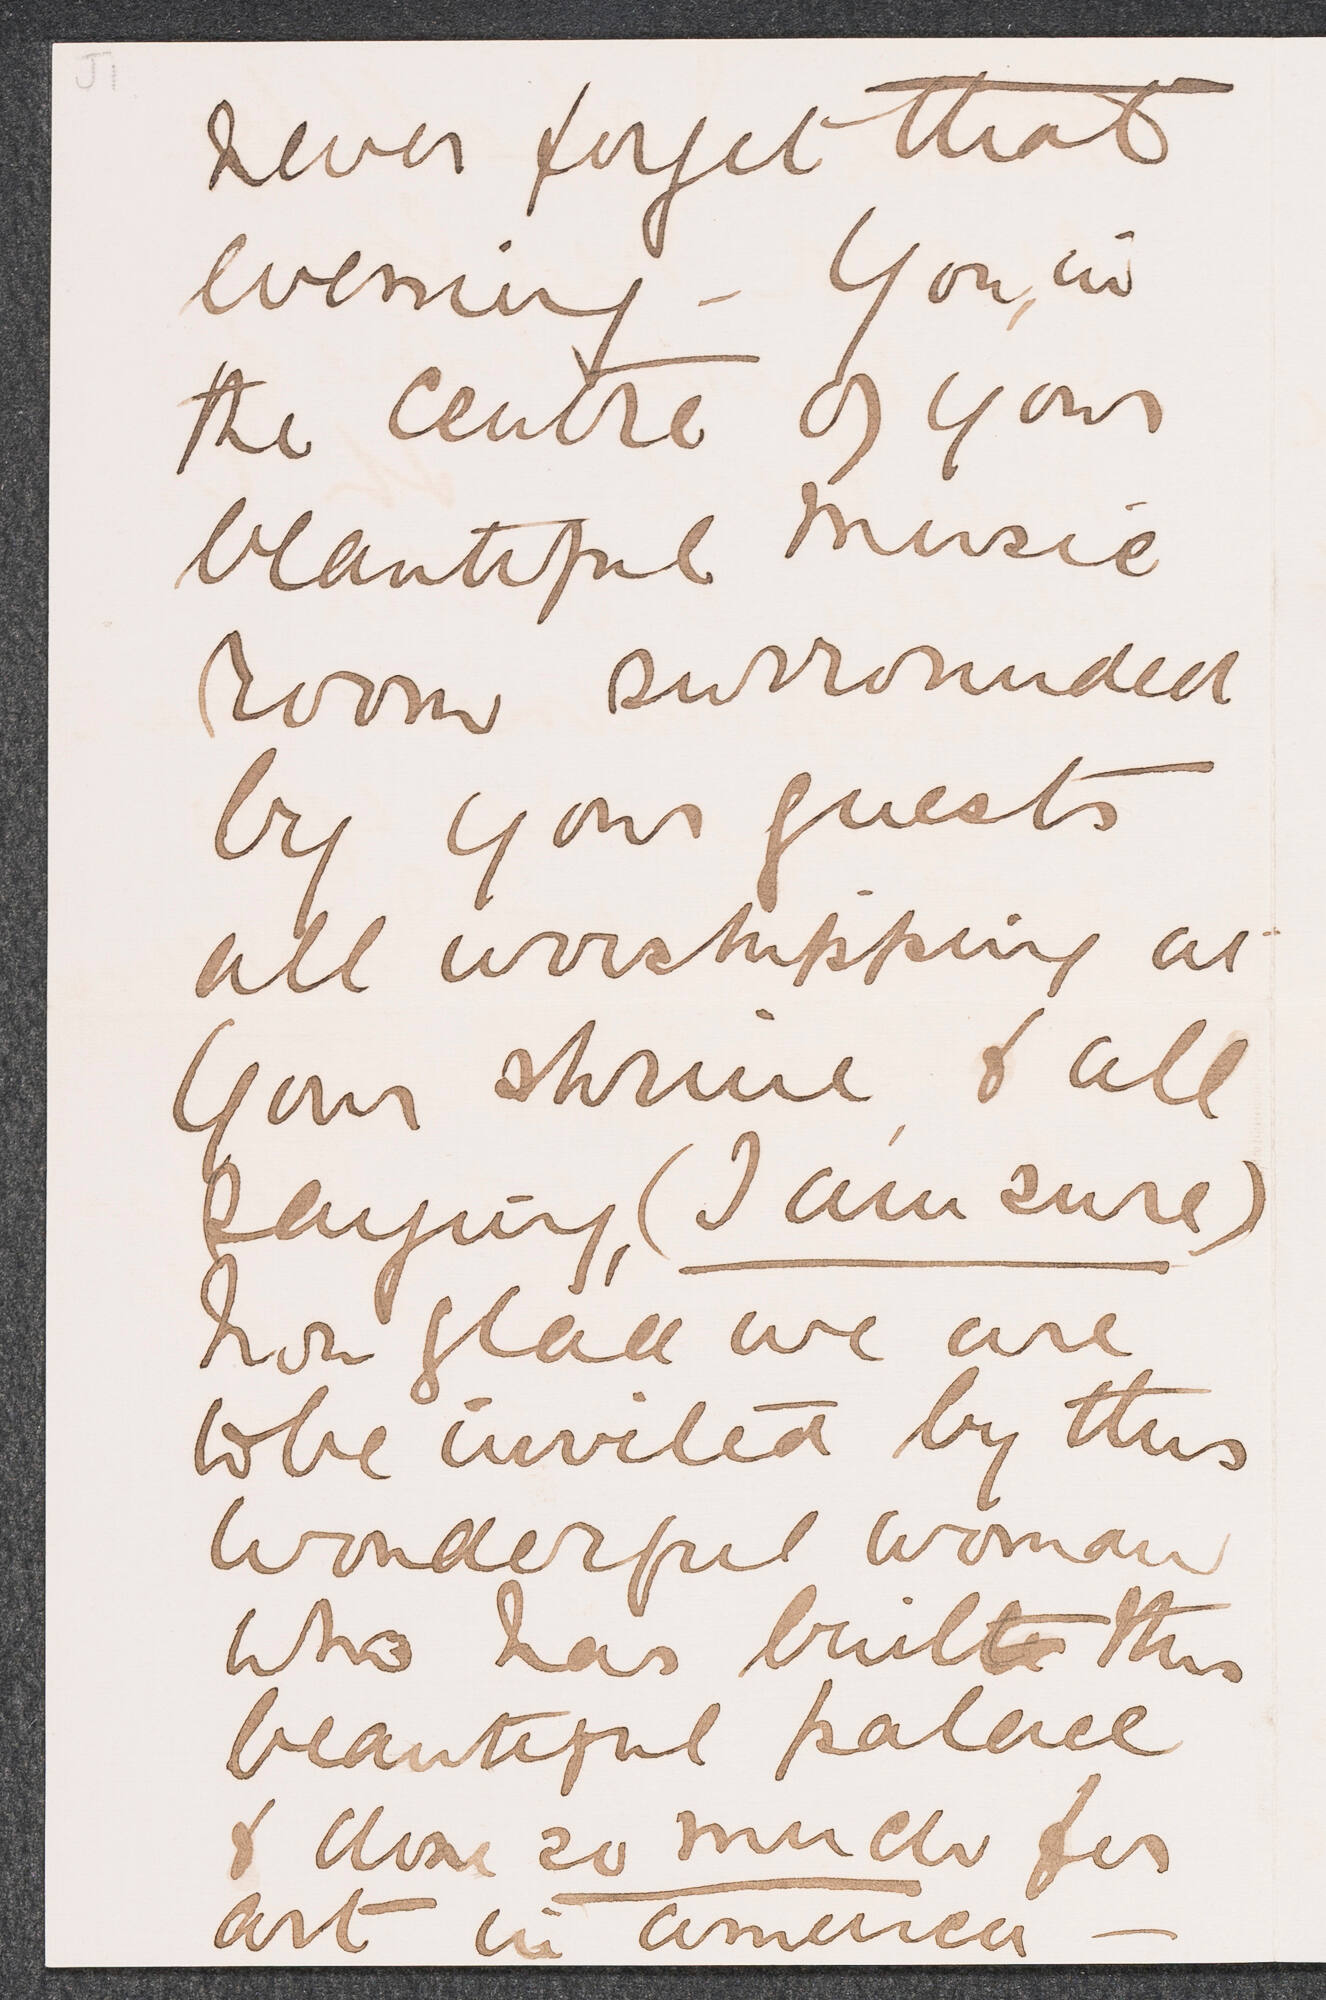 J1
never forget that
evening - You, in
the centre of your
beautiful music
room surrounded
by your guests
all worshipping at
your shrine & all
saying, (I am sure)
how glad we are
to be invited by this
wonderful woman
who has built this
beautiful palace
& done so much for
art in america -